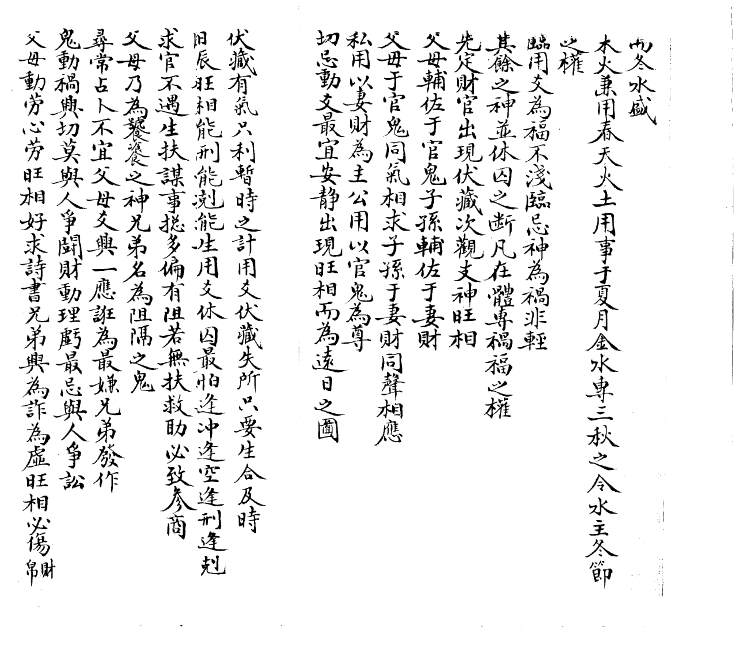 而冬水盛
木火兼用春天火土用事于夏月金水專三秋之令水主冬節
之權
臨用爻為福不淺臨忌神為禍非輕
其餘之神並休囚之斷凡在體專禍福之權
先定財官出現伏藏次觀支神旺相
父母輔佐于官鬼子孫輔佐于妻財
父母于官鬼同氣相求子孫于妻財同聲相應
私用以妻財為主公用以官鬼為尊
切忌動爻最宜安静出現旺相而為遠日之圖
伏藏有氣只利暫時之計用爻伏藏失所只要生合及時
日辰旺相能刑能剋能生用爻休囚最怕逢冲逢空逢刑逢剋
求官不遇生扶謀事揔多偏有阻若無扶救助必致參商
父母乃為饕餮之神兄弟名為阻隔之鬼
尋常占卜不宜父母爻興一應誑為最嫌兄弟發作
鬼動禍興切莫與人爭鬪財動理虧最忌與人爭訟
父母動勞心勞旺相好求詩書兄弟興為詐為虛旺相必傷財帛